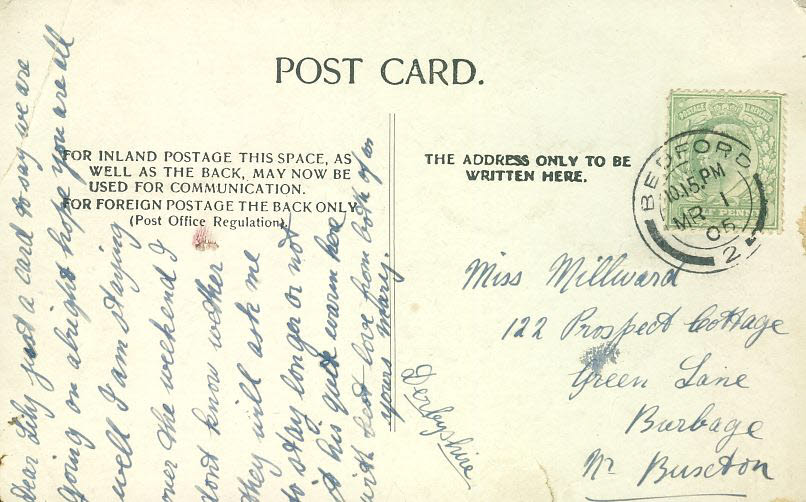 POST CARD.
FOR INLAND POSTAGE THIS SPACE, AS
WELL AS THE BACK, MAY NOW BE
USED FOR COMMUNICATION.
FOR FOREIGN POSTAGE THE BACK ONLY
(Post Office Regulation).
THE ADDRESS ONLY TO BE
WRITTEN HERE.
Dear Lily just a card to say we are
going on alright hope you are all
well I am staying
over the weekend I
dont know wether
they will ask me
to stay longer or not
it his quit warm here
with best love from both of us
yours Mary.
POSTAGE
BEDFORD
10.15.PM
MR 1
06
2
Miss Millward
122 Prospect Cottage
Green Lane
Burbage
Nr Buxton
Derbyshire